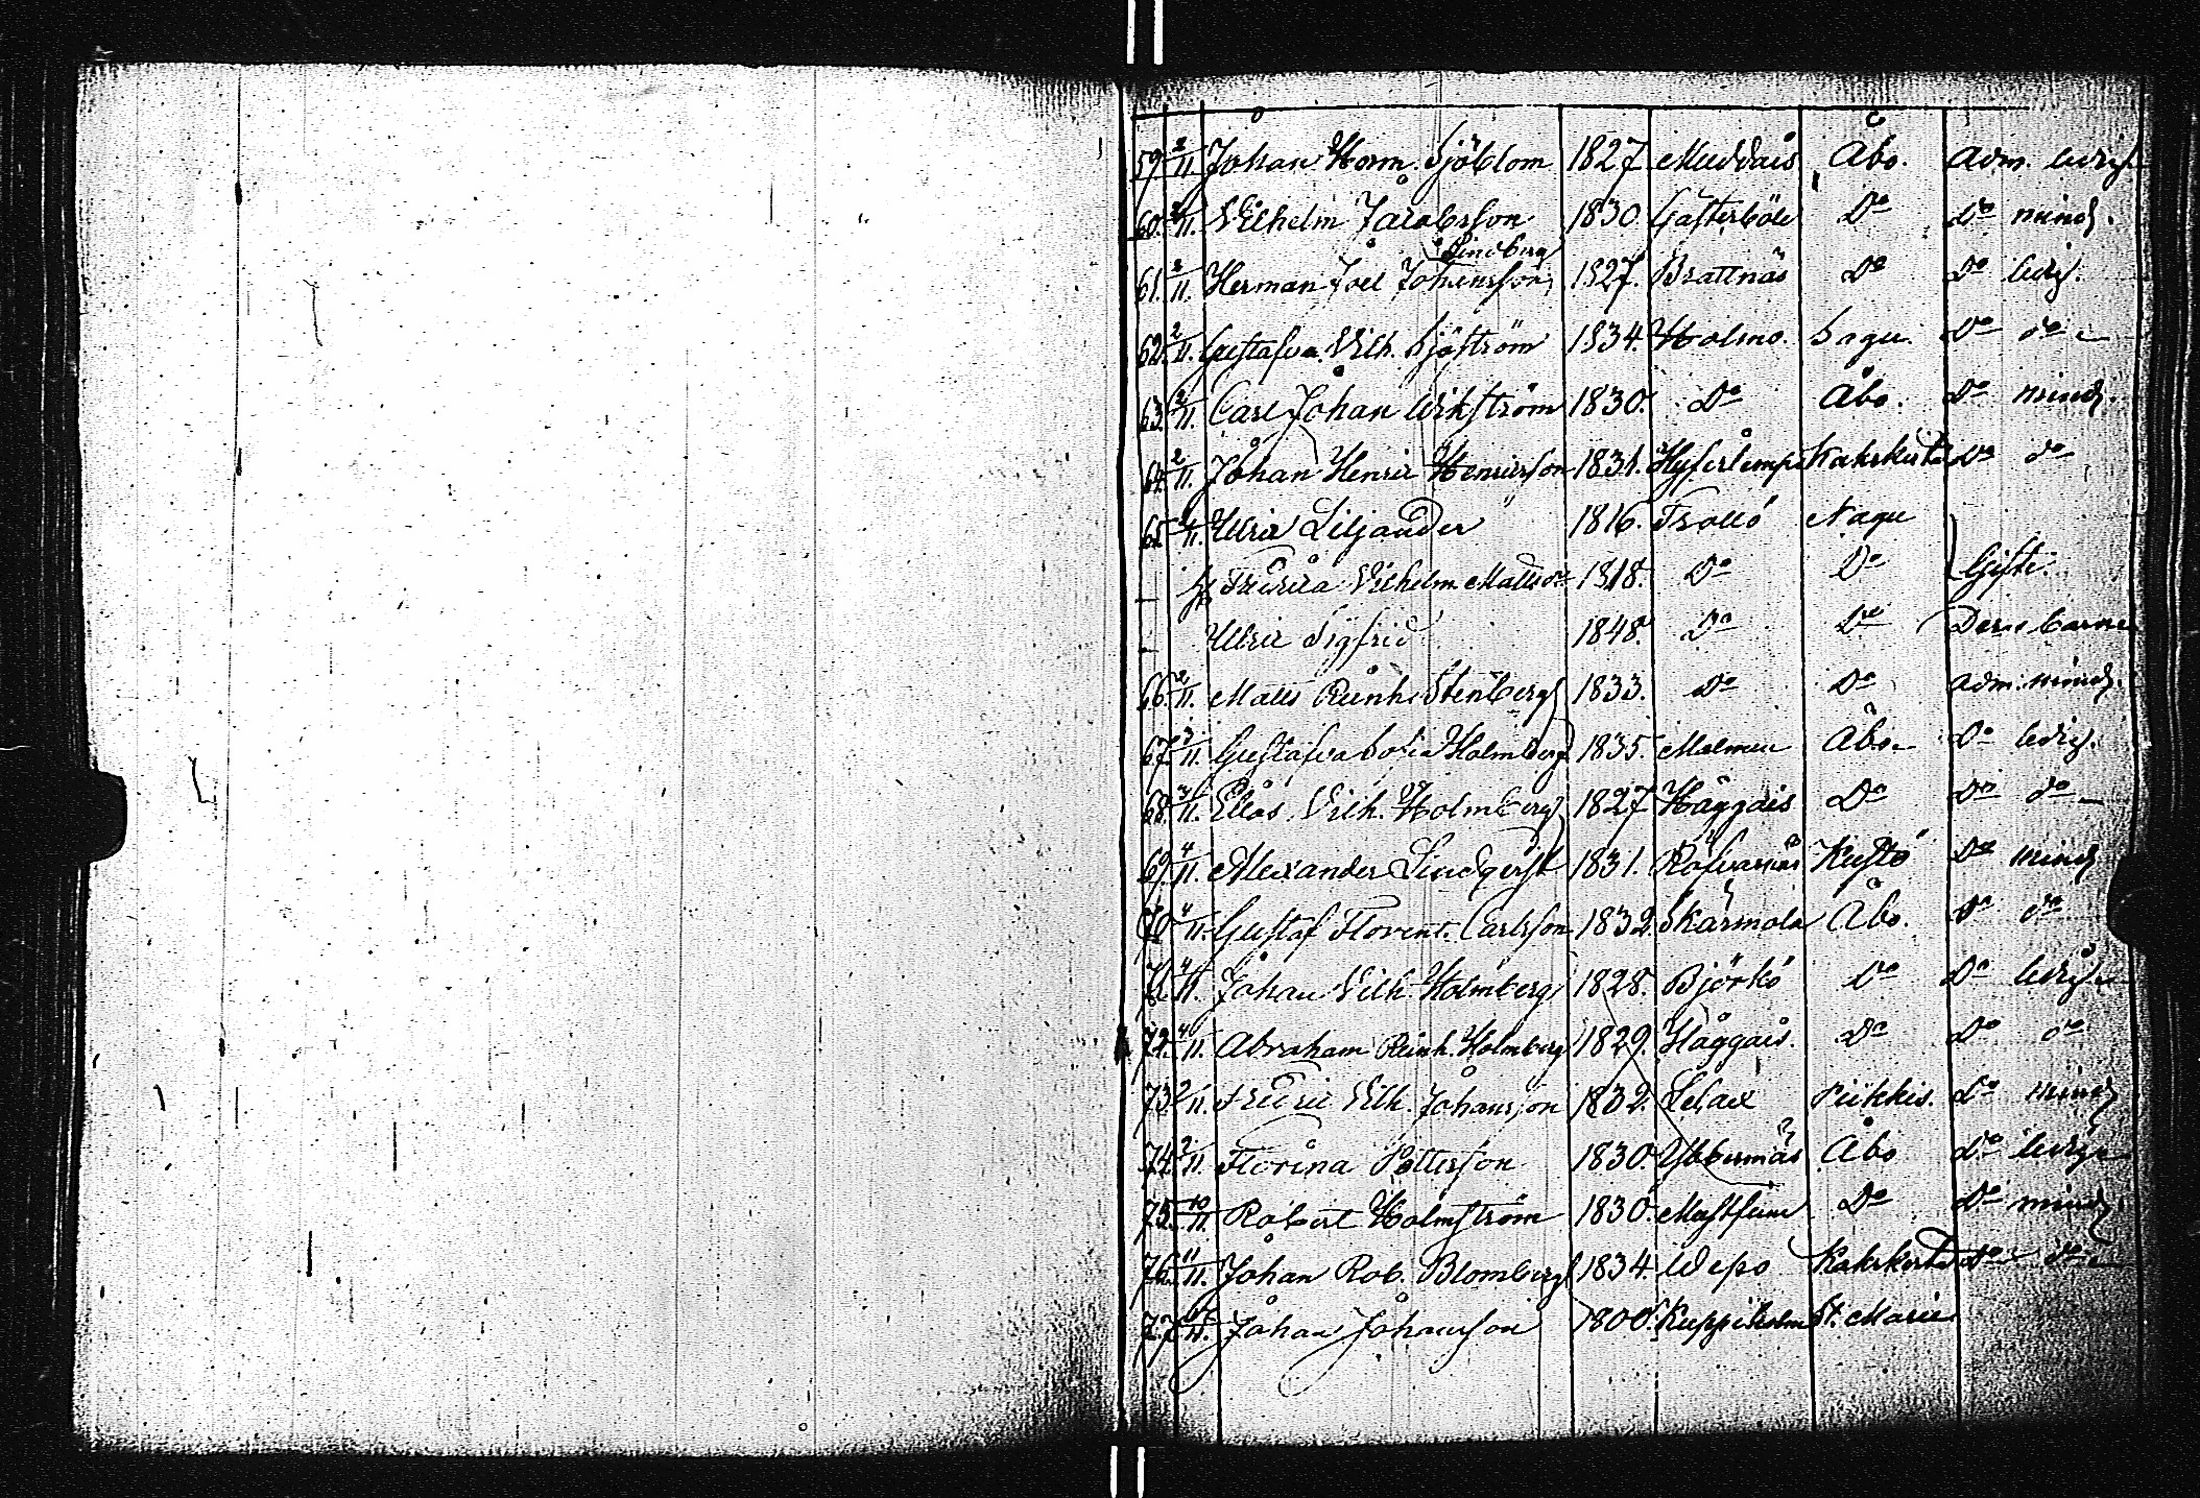 59. 2/11. Johan Herm. Sjöblom 1827 Muddais Åbo. Adm. ledig
60. 2/11. Vilhelm Jacobsson 1830. Gasterböle Do do mindr.
Lindberg
61. 2/11. Herman Joel Johansson 1827. Brattnäs Do Do ledig.
62. 2/11. Gustafva Vilh. Sjöström 1834. Holmo. Sagu. Do do
63. 2/11. Carl Johan Wikström 1830. Do Åbo. Do mindr.
64. 2/11. Johan Henric Henricsson 1831. Kakskerta do do
65. 2/11. Ulric Liljander 1816. Trollö Nagu
H. Fredrica Vilhelm. Matts dr 1818. Do Do Gifte.
Ulric Sigfrid 1848. Do Do Deras barn
66. 2/11. Matts Reinh. Stenberg 1833. Do Do Adm. mindr.
67. 3/11. Gustafva Sofia Holmberg 1835. Malmen Åbo Do ledig.
68. 3/11. Elias Vilh. Holmberg 1827 Häggais Do Do do
69. 4/11. Alexander Lindqvist 1831. Röfvarnäs Kustö Do mindr
70. 4/11. Gustaf Florent. Carlsson 1832. Skärmola Åbo. Do do
71. 4/11. Johan Vilh. Holmberg 1828. Björkö Do Do ledig
72. 4/11. Abraham Reinh. Holmberg 1829. Häggais. Do Do do
73. 2/11. Fredric Vilh. Johansson 1832. Lelax Piikkis. Do mindr
74. 2/11. Florina Pettersson 1830. Ybbernäs Åbo Do ledig
75. 10/11. Robert Holmström 1830. Mustfinn Do Do mindr.
76. 11/11. Johan Rob. Blomberg 1834. Wepo Kakskerta do do
77. /11. Johan Johansson 1800. Kuppisholm St. Marie